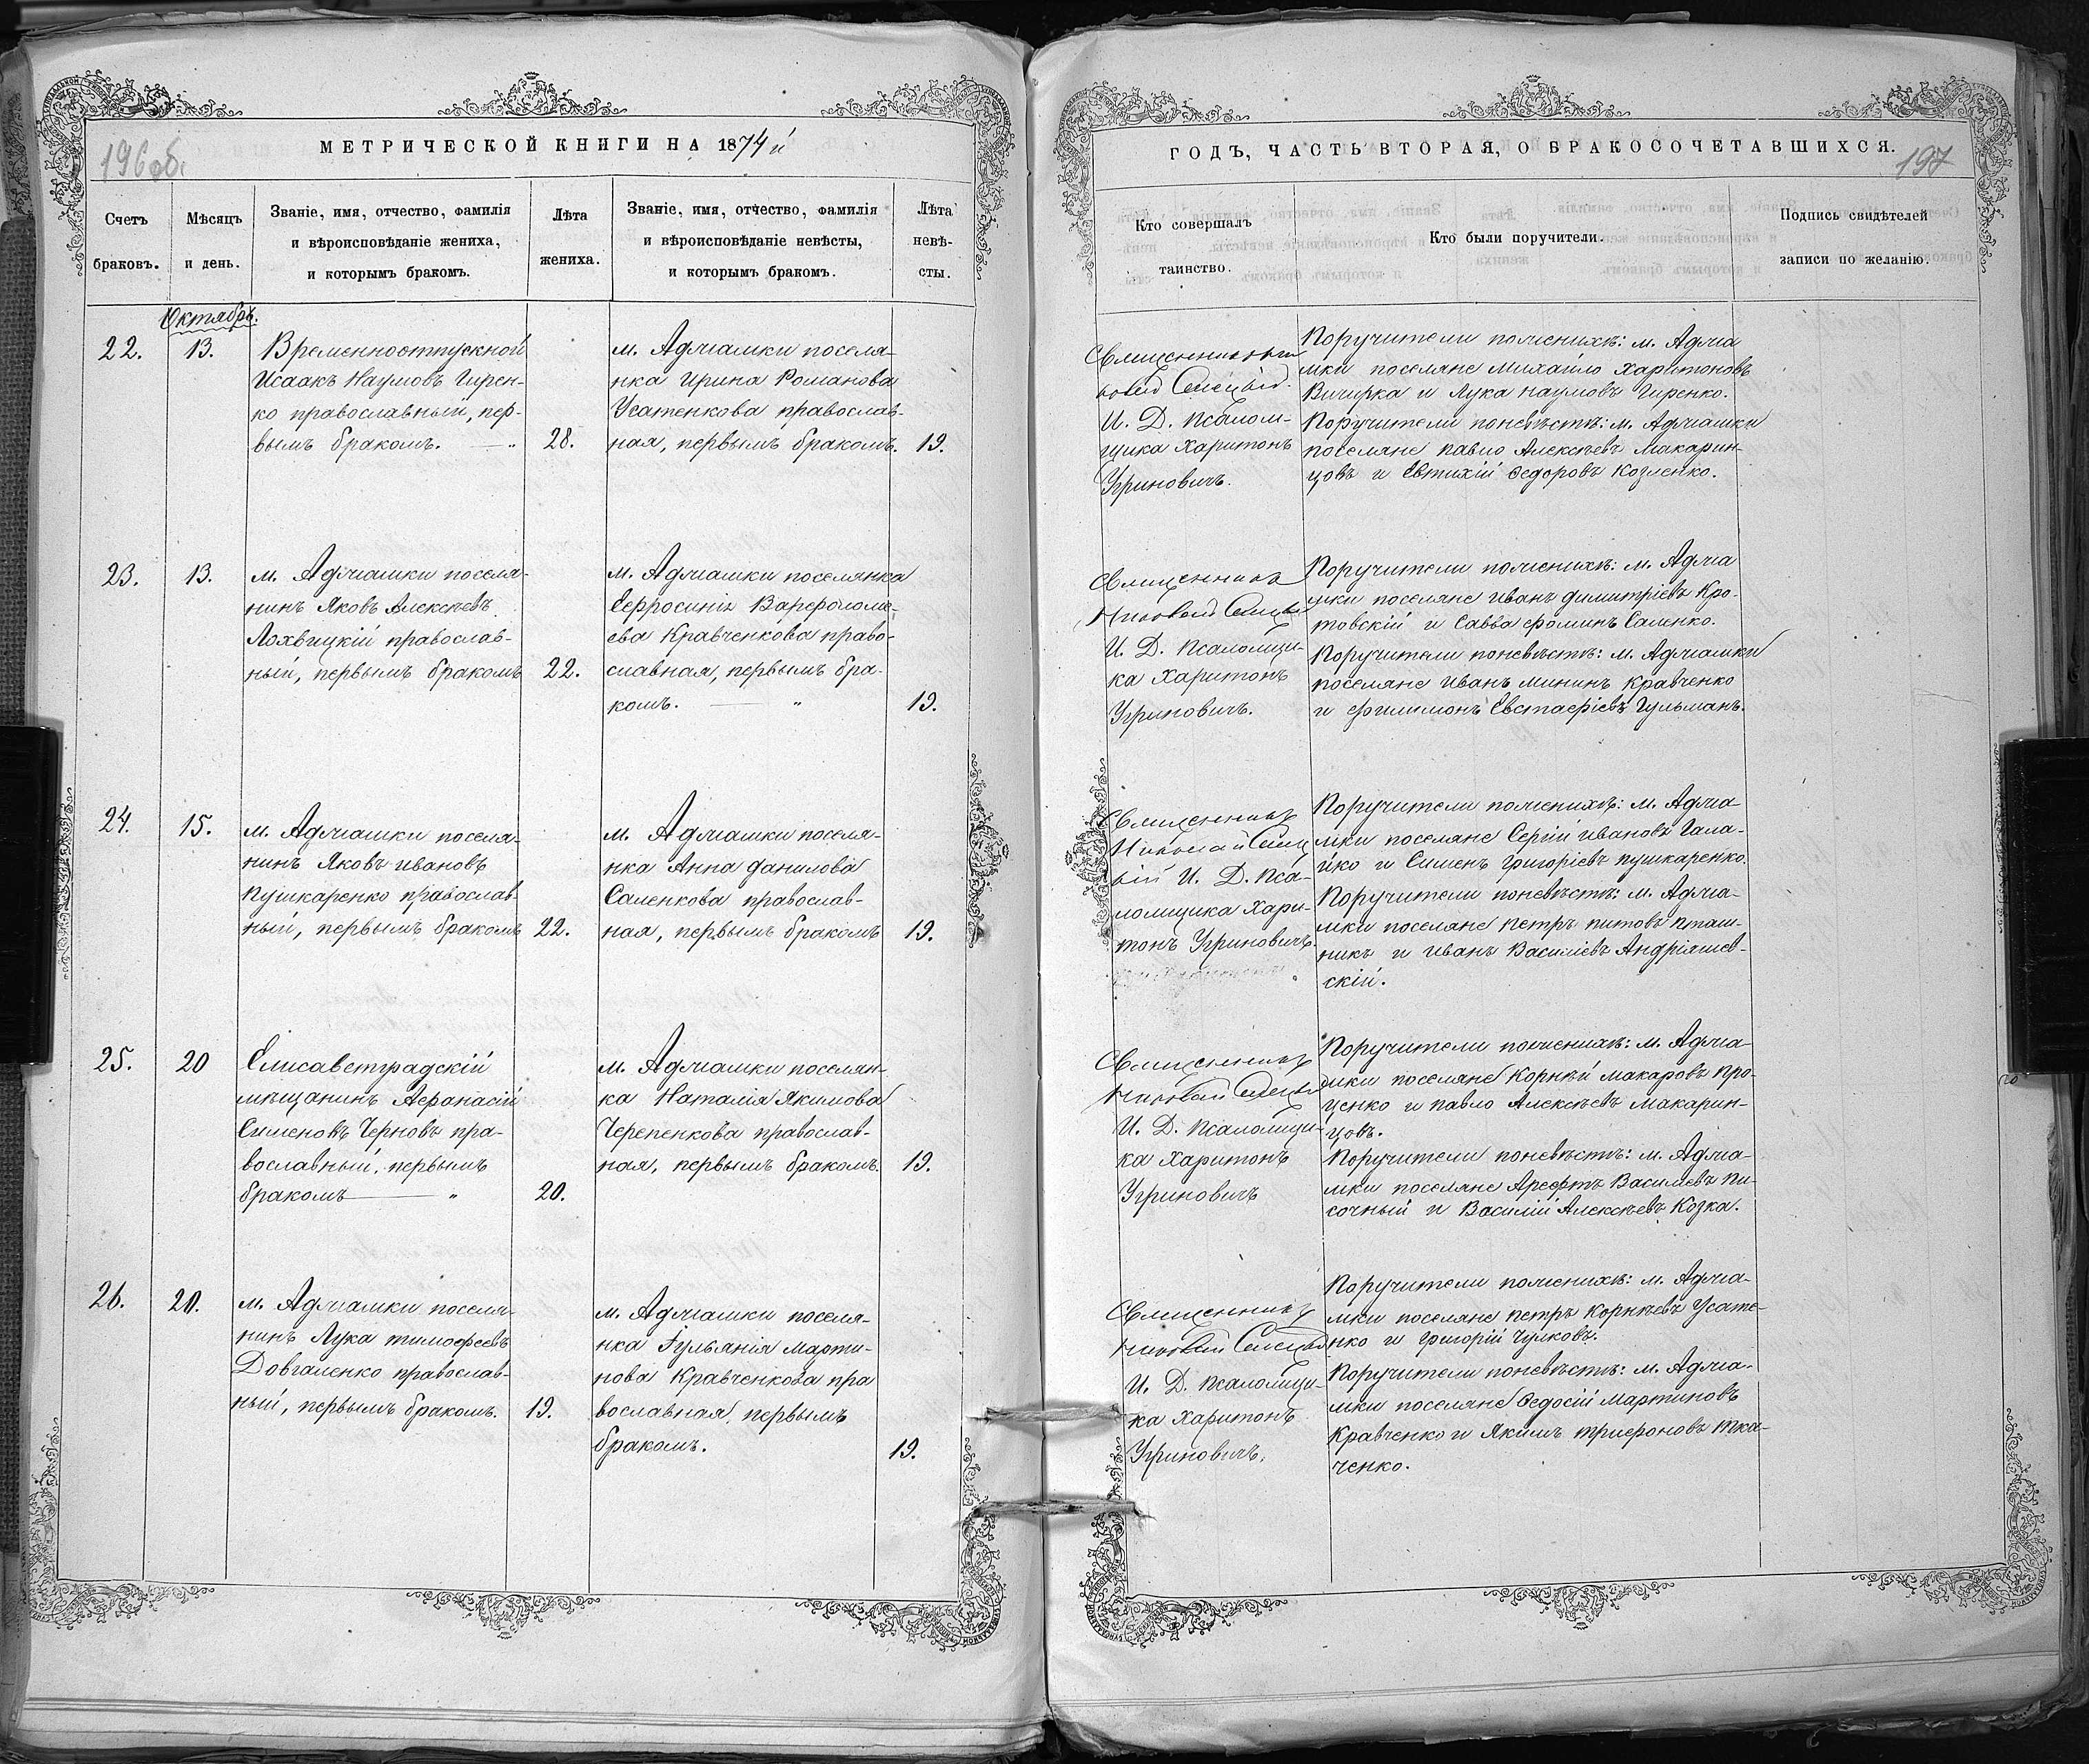 МЕТРИЧЕСКОЙ КНИГИ НА 1874й
196об.
Счетъ браковъ.
Мѣсяцъ и день.
Званіе, имя, отчество, фамилія
и вѣроисповѣданіе жениха,
и которымъ бракомъ.
Лѣта
жениха.
Званіе, имя, отчество, фамилія
и вѣроисповѣданіе невѣсты,
и которымъ бракомъ.
Лѣта
невѣ-
сты.
Октябрь.
22.
13.
Временноотпускной
Исаакъ Наумовъ Гирен-
ко православный, пер-
вымъ бракомъ.
28.
м. Аджамки поселя-
нка Ирина Романова
Усатенкова православ-
ная, первымъ бракомъ.
19.
23.
13.
м. Аджамки поселя-
нинъ Яковъ Алексѣевъ
Лохвицкій православ-
ный, первымъ бракомъ
22.
м. Аджамки поселянка
Евфросинія Варфоломе-
ева Кравченкова право-
славная, первымъ бра-
комъ.
19.
24.
15.
м. Аджамки поселя-
нинъ Яковъ Ивановъ
Пушкаренко православ-
ный, первымъ бракомъ
22.
м. Аджамки поселя-
нка Анна Данилова
Саленкова православ-
ная, первымъ бракомъ
19.
25.
20
Елисаветградскій
мѣщанинъ Афанасій
Сименовъ Черновъ пра-
вославный, первымъ
бракомъ
20.
м. Аджамки поселян-
ка Наталія Якимова
Черепенкова православ-
ная, первымъ бракомъ.
19.
26.
20.
м. Аджамки поселя-
нинъ Лука Тимофеевъ
Довгаленко православ-
ный, первымъ бракомъ.
19.
м. Аджамки поселя-
нка Іульянія Марти-
нова Кравченкова пра
вославная, первымъ
бракомъ.
19.
ГОДЪ, ЧАСТЬ ВТОРАЯ, О БРАКОСОЧЕТАВШИХСЯ.
197
Кто совершалъ
таинство.
Кто были поручители.
Подпись свидѣтелей
записи по желанію.
Священникъ
И. Д. Псалом-
щика Харитонъ
Угриновичъ.
Поручители поженихѣ: м. Аджа
мки поселяне Михайло Харитоновъ
Вичирка и Лука Наумовъ Гиренко.
Поручители поневѣстѣ: м. Аджамки
поселяне Павло Алексѣевъ Макарин-
цовъ и Евтихій Федоровъ Козленко.
Священникъ
И. Д. Псаломщи-
ка Харитонъ
Угриновичъ.
Поручители поженихѣ: м. Аджа
мки поселяне Иванъ Димитріевъ Кро-
товскій и Савва Фоминъ Саленко.
Поручители поневѣстѣ: м. Аджамки
поселяне Иванъ Мининъ Кравченко
и Филимонъ Евстафіевъ Гульманъ.
Священникъ
Николай
И. Д. Пса-
ломщика Хари-
тонъ Угриновичъ.
Поручители поженихѣ: м. Аджа-
мки поселяне Сергій Ивановъ Гала-
йко и Сименъ Григоріевъ Пушкаренко.
Поручители поневѣстѣ: м. Аджа-
мки поселяне Петръ Титовъ Пташ-
никъ и Иванъ Василіевъ Андріяшев-
скій.
Священникъ
И. Д. Псаломщи-
ка Харитонъ
Угриновичъ
Поручители поженихѣ: м. Аджа-
мки поселяне Корнѣй Макаровъ Про-
ценко и Павло Алексѣевъ Макарин-
цовъ.
Поручители поневѣстѣ: м. Аджа-
мки поселяне Арефтъ Василіевъ Пи-
сочный и Василій Алексѣевъ Козка.
Священникъ
И. Д. Псаломщи-
ка Харитонъ
Угриновичъ.
Поручители поженихѣ: м. Аджа-
мки поселяне Петръ Корнѣевъ Усате-
нко и Григорій Чулковъ.
Поручители поневѣстѣ: м. Аджа-
мки поселяне Федосій Мартиновъ
Кравченко и Якимъ Трифоновъ Тка-
ченко.